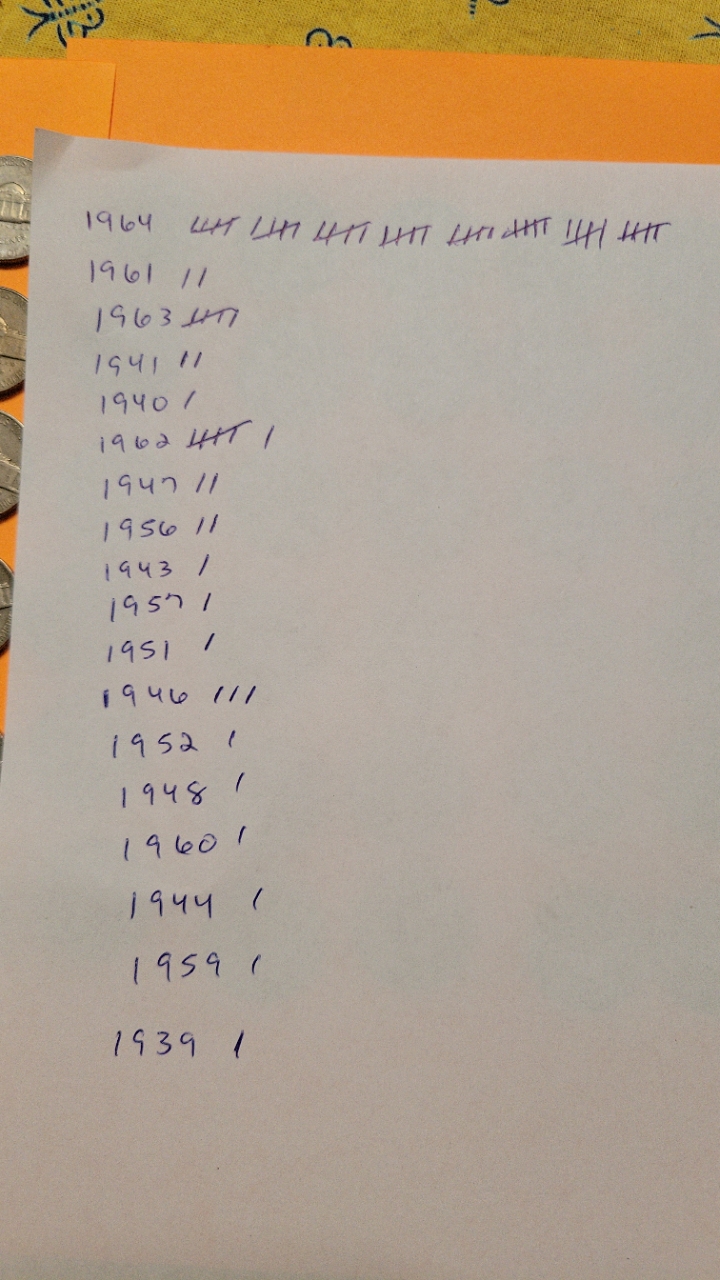 1964 卌 卌 卌 卌 卌 卌 卌 卌
1961 //
1963 卌
1941 //
1940 /
1962 卌 /
1947 //
1956 //
1943 /
1957 /
1951 /
1946 ///
1952 /
1948 /
1960 /
1944 /
1959 /
1939 /